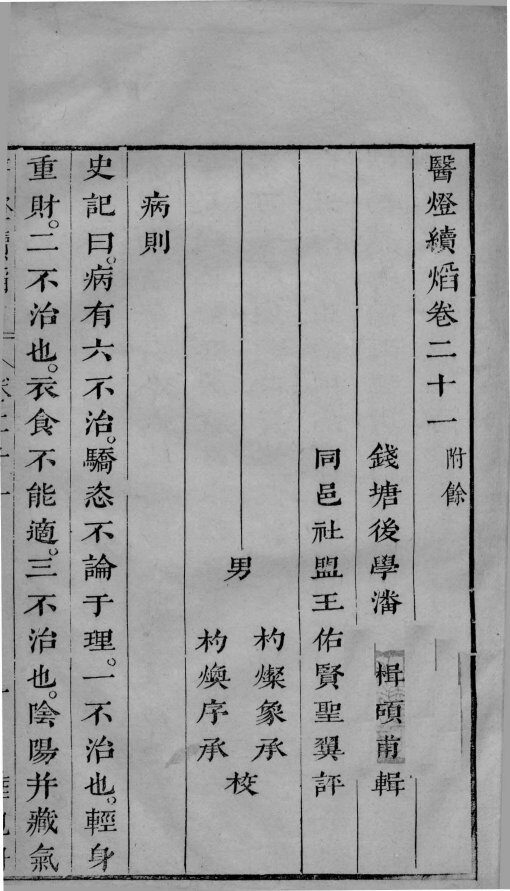 醫燈續焰卷二十一 附餘
錢塘後學潘 楫碩甫輯
同邑社盟王佑賢聖翼評
男
杓燦象承
杓煥序承
校
病則
史記曰。病有六不治。驕恣不論于理。一不治也。輕身
重財。二不治也。衣食不能適。三不治也。陰陽并藏氣